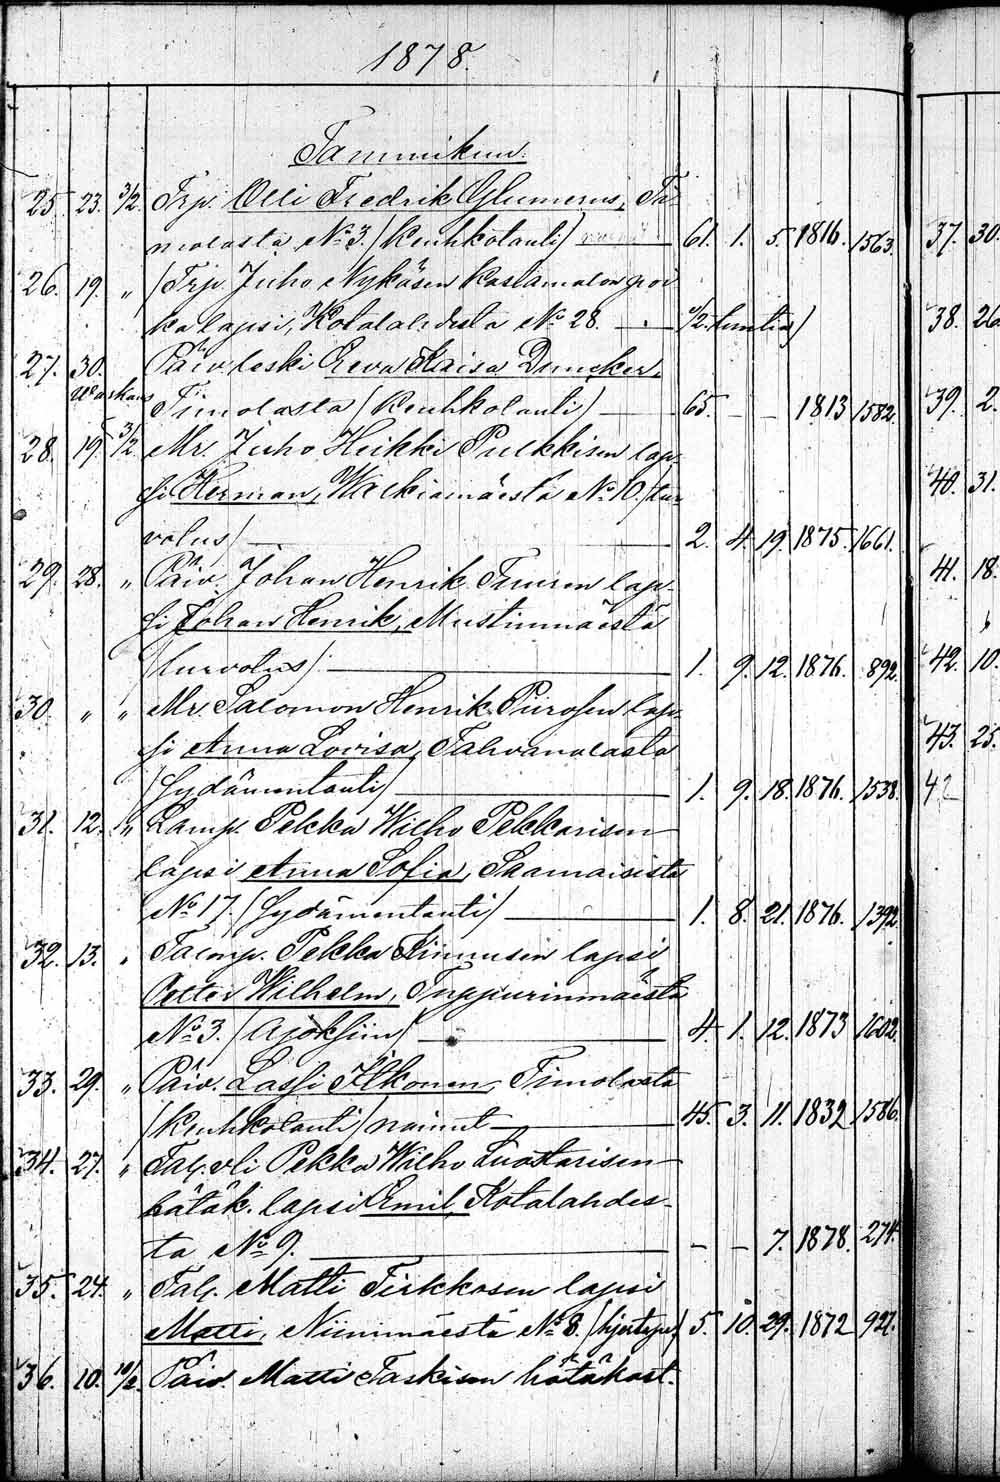 1878.
Tammikuu.
25. 23. 3/2. Trp. Olli Fredrik Glumerus, Ti-
molasta, No 3. (Keuhkotauti) 61. 1. 5. 1816. 1563.
26. 19. " (Trp. Juho Nykäsen kaslamaton poi
ka lapsi, Kotalahdesta No 28. 1/2 tuntia)
27. 30. Päiv. leski Eeva Kaisa Duncker,
Timolasta (Keuhkotauti) 65. - - 1813 1582.
28. 19. 3/2. Mr. Juho Heikki Pulkkisen lap-
si Herman, Walkiamäestä No 10. (tur-
votus) 2. 4. 19. 1875. 1661.
29. 28. " Päiv. Johan Henrik Tamsen lap-
si Johan Henrik, Mustinmäestä
(turvotus) 1. 9. 12. 1876. 892.
30. " " Mr. Salomon Henrik Piirosen lap-
si Anna Lovisa, Talvanolasta
(Sydämentauti) 1. 9. 18. 1876. 1538.
31. 12. " Lamp. Pekka Wilho Pekkarisen
lapsi Anna Sofia, Saamaisista
No 17. (Sydämentauti) 1. 8. 21. 1876. 1392.
32. 13. " Talomp. Pekka Kinnusen lapsi
Petter Wilhelm, Tuppurinmäestä
No 3. (Ajoksiin) 4. 1. 12. 1873 1602.
33. 29. " Päiv. Lassi Ilkonen, Timolasta
(Keuhkotauti) nainut 45. 3. 11. 1832 1586.
34. 27. " Tal. vli Pekka Wilho Luostarisen
hätäk. lapsi Emil, Kotalahdes-
ta No 9. - - 7. 1878. 274.
35. 24. " Tal. Matti Tirkkosen lapsi
Matti, Niinimäestä No 8. 5. 10. 29. 1872 927.
36. 10. 10/2. Päiv. Matti Taskisen hätäkast.
37. 30.
38. 26
39. 2.
40. 31.
41. 18.
42. 10.
43. 25.
42